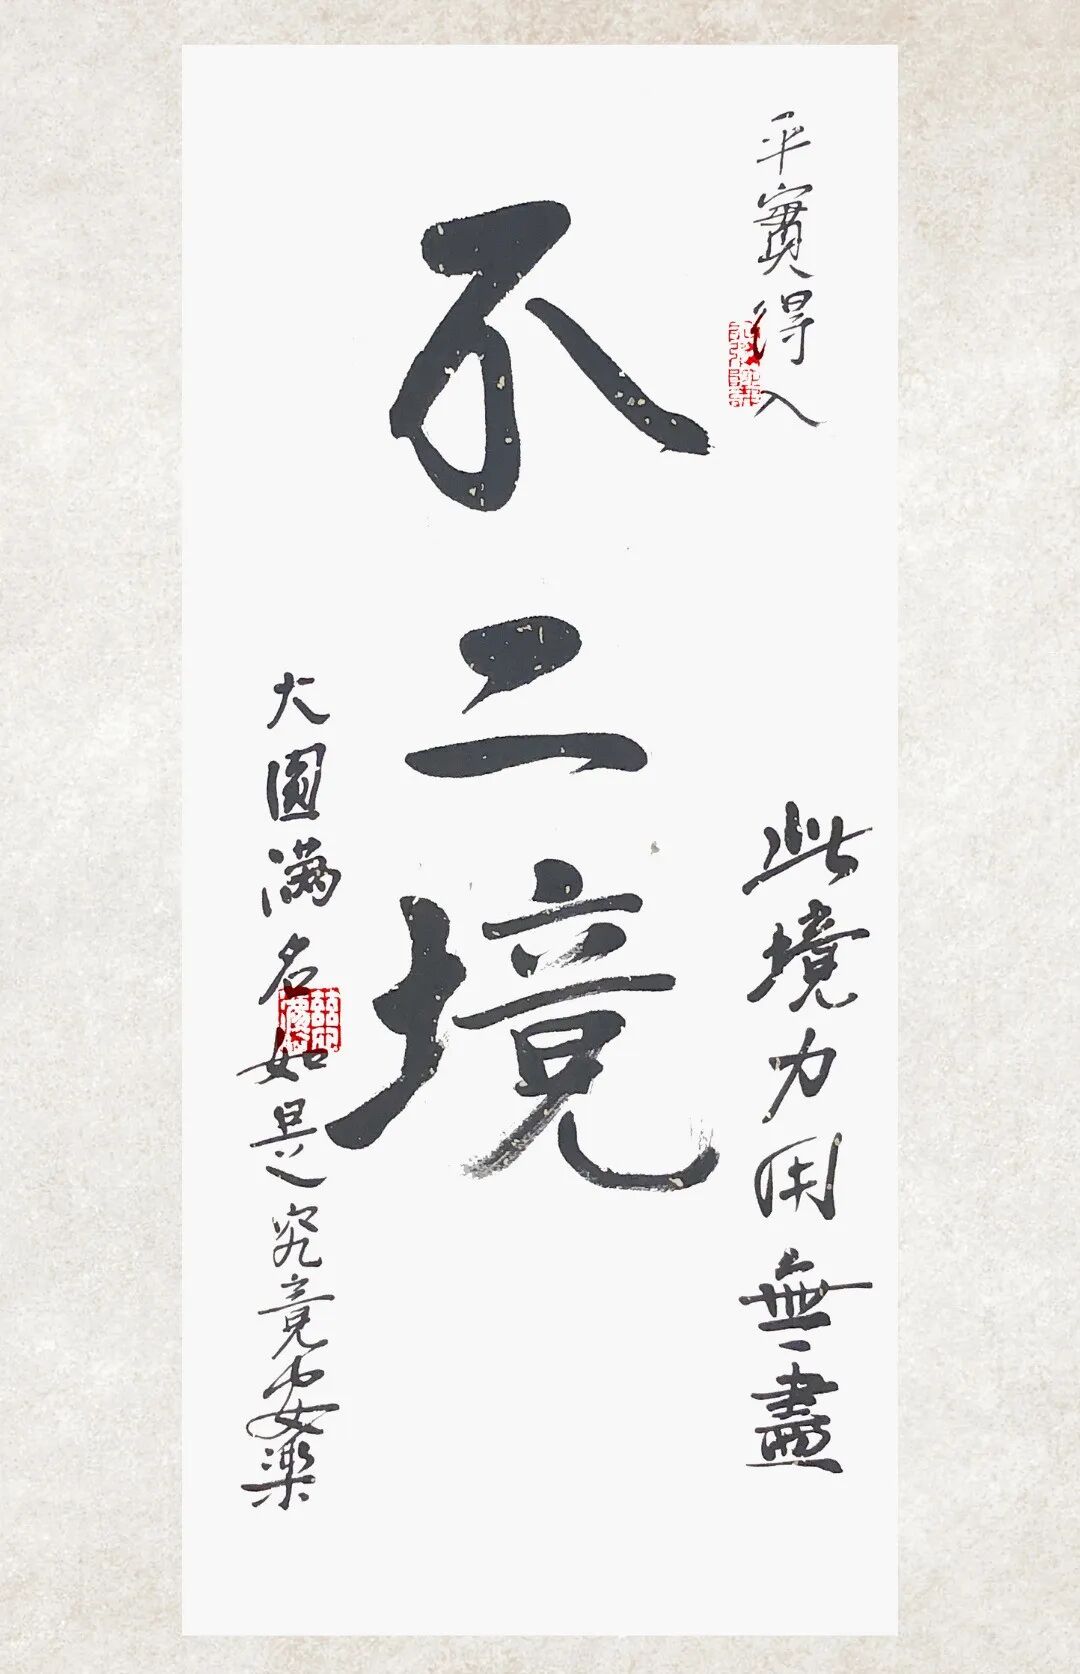 平實得入
不二境
此境力用無盡
大圓滿名如是究竟安樂